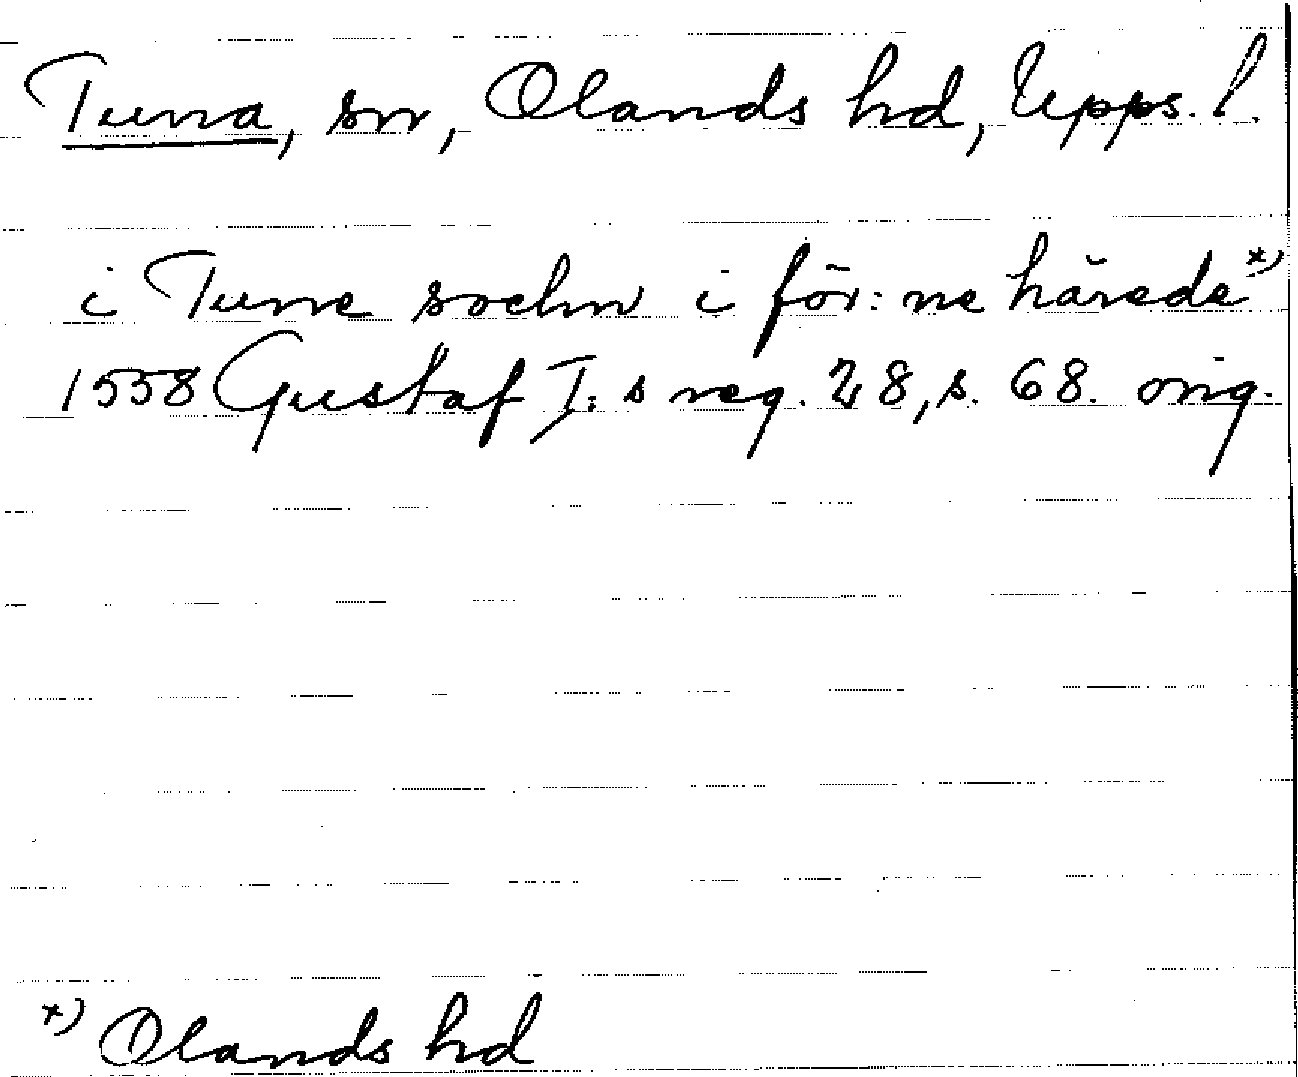 Tuna, sn, Olands hd, Upps. l.
i Tune sochn i för: ne härede *)
1558 Gustaf I: s reg. 28, s. 68. orig.
*) Olands hd